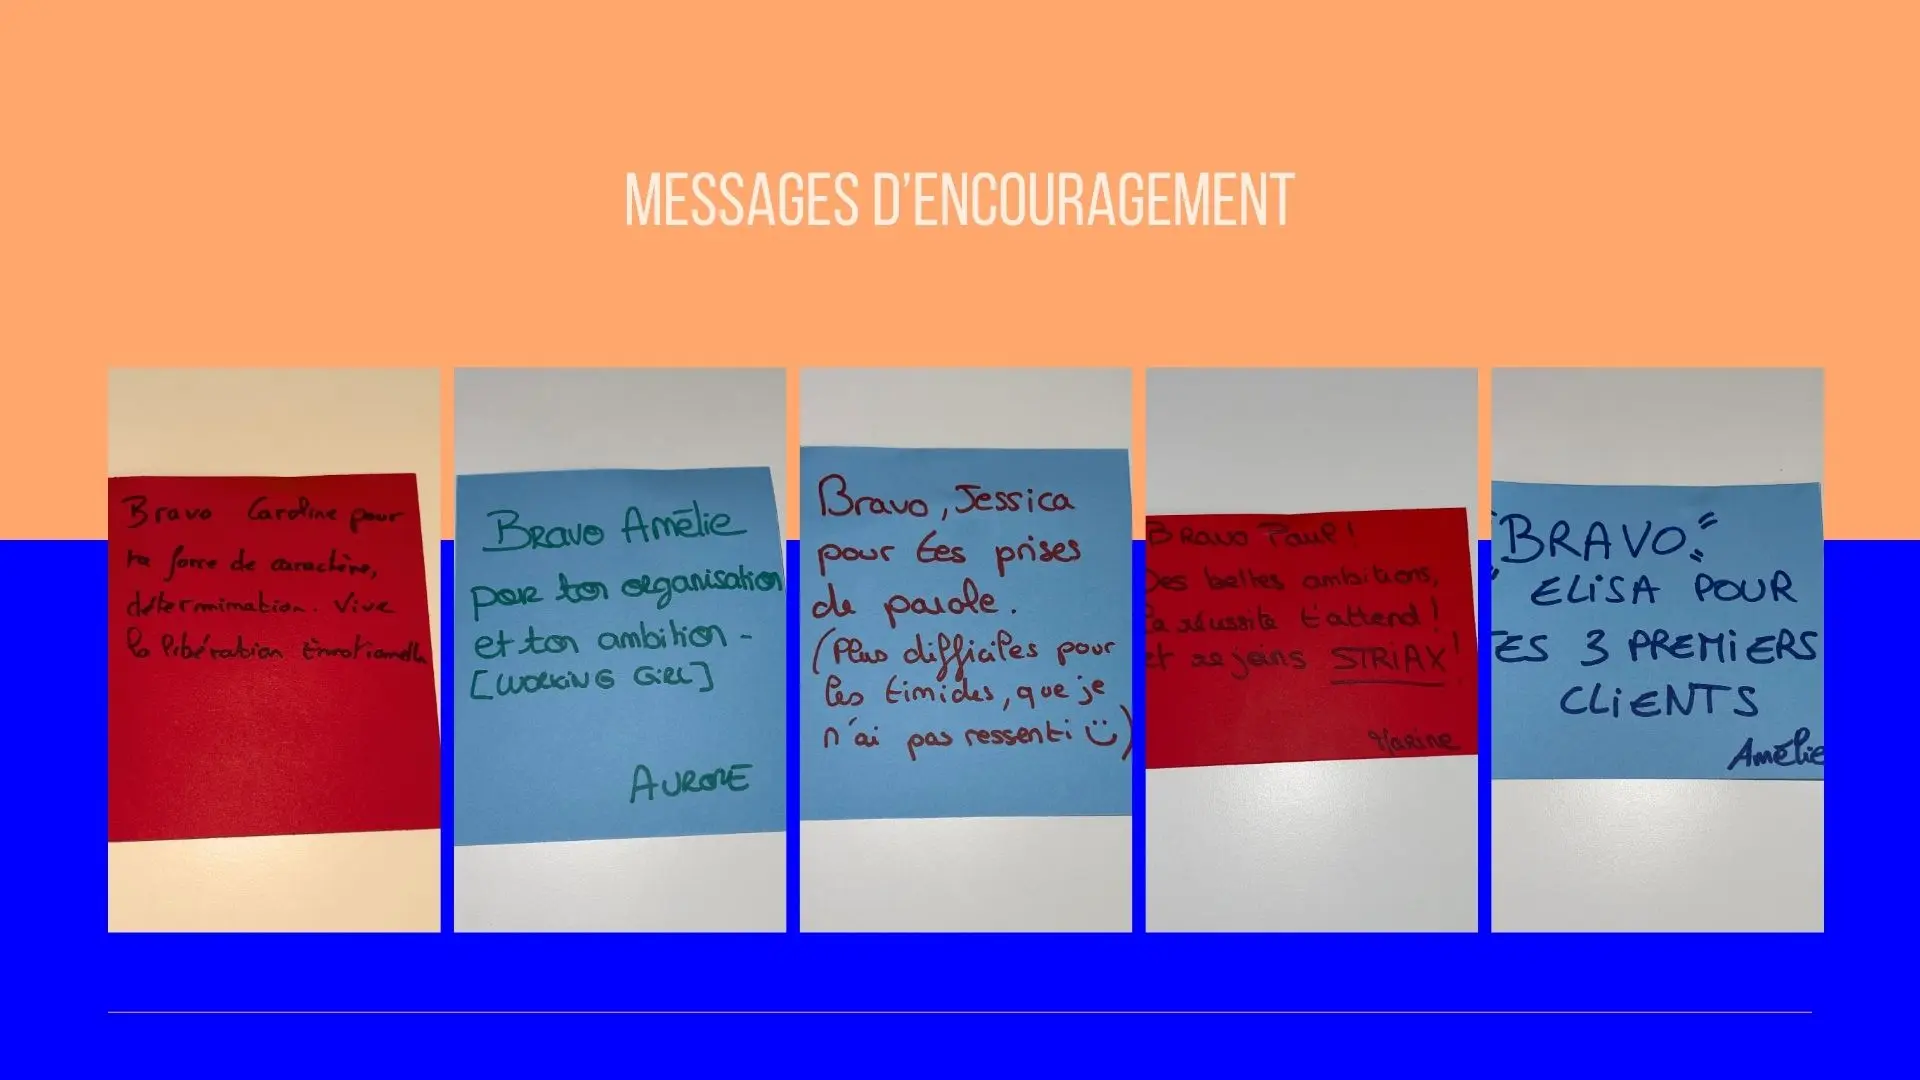 MESSAGES D'ENCOURAGEMENT
Bravo Caroline pour
ta force de caractère,
détermination. Vive
la libération Émotionnelle
Bravo Amélie
pour ton organisation
et ton ambition -
[WORKING GIRL]
AURORE
Bravo, Jessica
pour tes prises
de parole.
(Plus difficiles pour
les timides, que je
n'ai pas ressenti ☺)
Bravo Paul!
Des belles ambitions,
la réussite t'attend!
et rejoins STRIAX!
Marine
"BRAVO"
ELiSA POUR
TES 3 PREMiERS
CLiENTS
Amélie